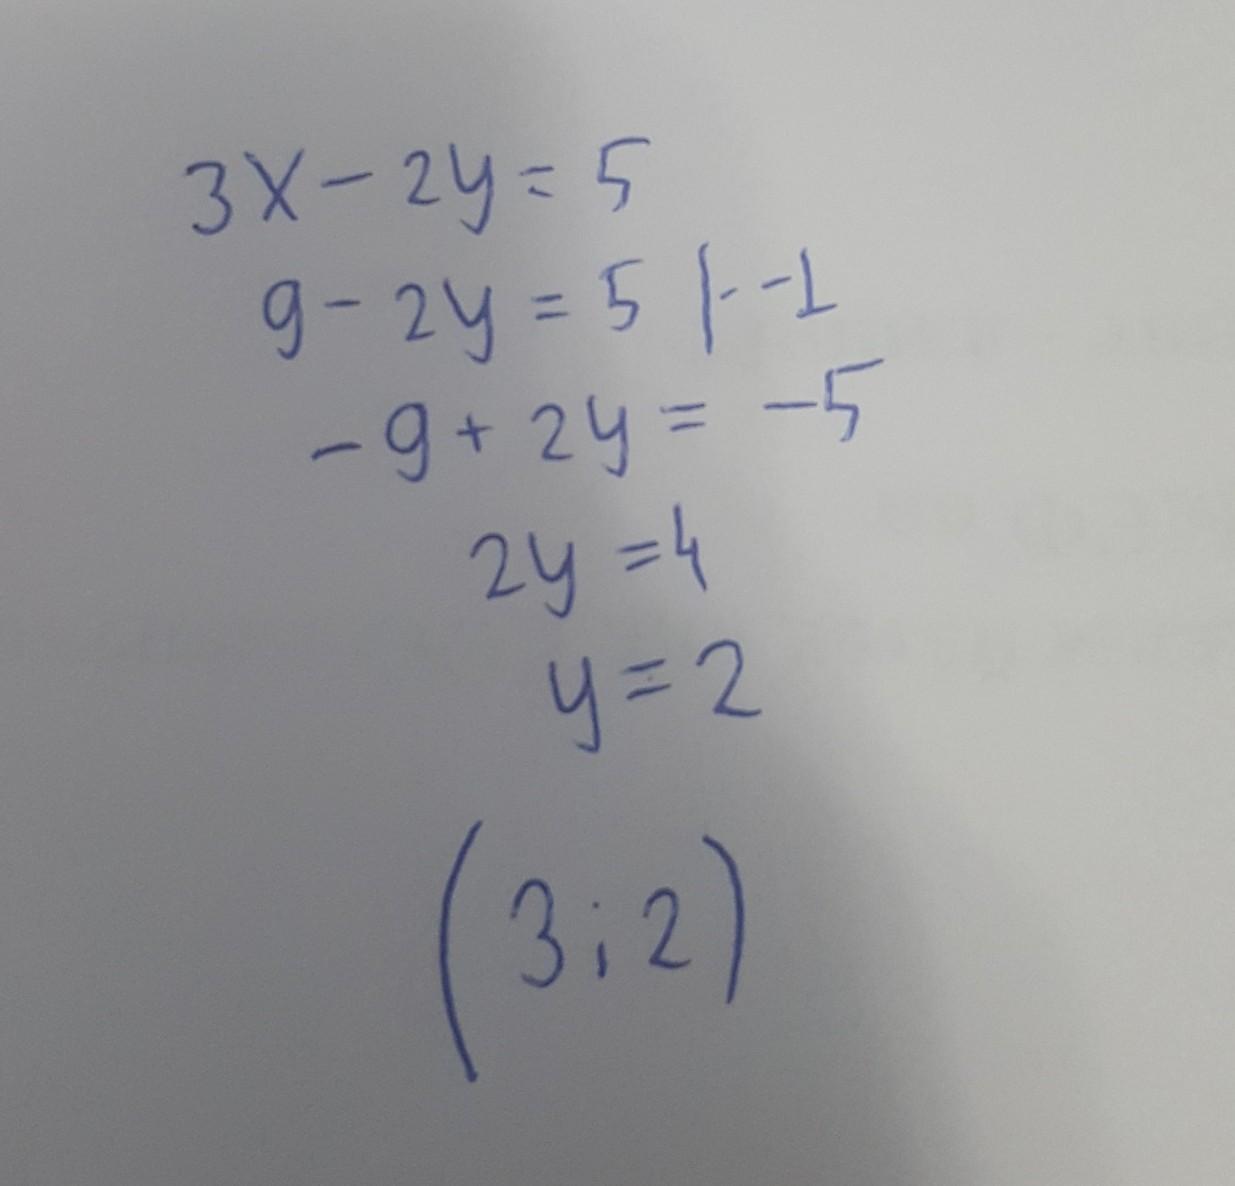 3x - 2y = 5
9 - 2y = 5 |· -1
-9 + 2y = -5
2y = 4
y = 2
(3; 2)